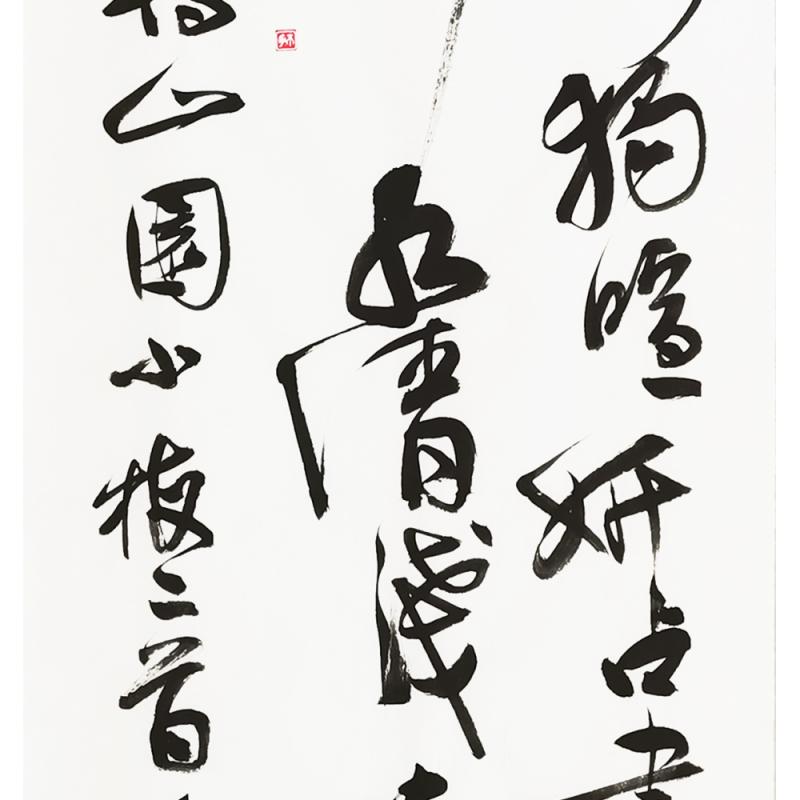 獨暄妍占
水清淺
山園小梅二首